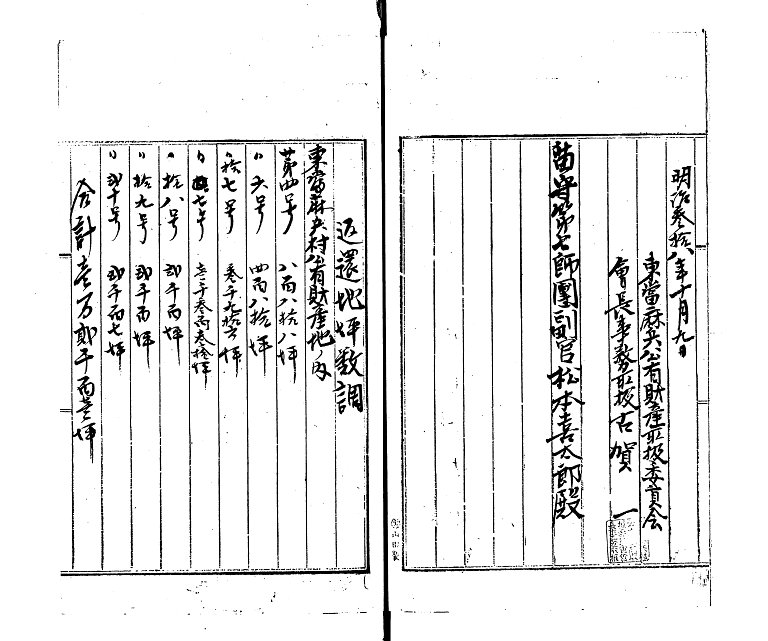 明治参拾八年十月九日
東當麻共公有財産取扱委員会
會長事務取扱古賀一
留守第七師團副官松本喜太郎殿
返還地坪数調
東當麻共村公有財産地ノ内
第四号 八百八拾八坪
〃六号 四百八拾坪
〃拾七号 参千九拾六坪
〃七号 壱千参百参拾坪
〃拾八号 弐千百坪
〃拾九号 弐千百坪
〃弐十号 弐千百七坪
合計壱万弐千百壱坪